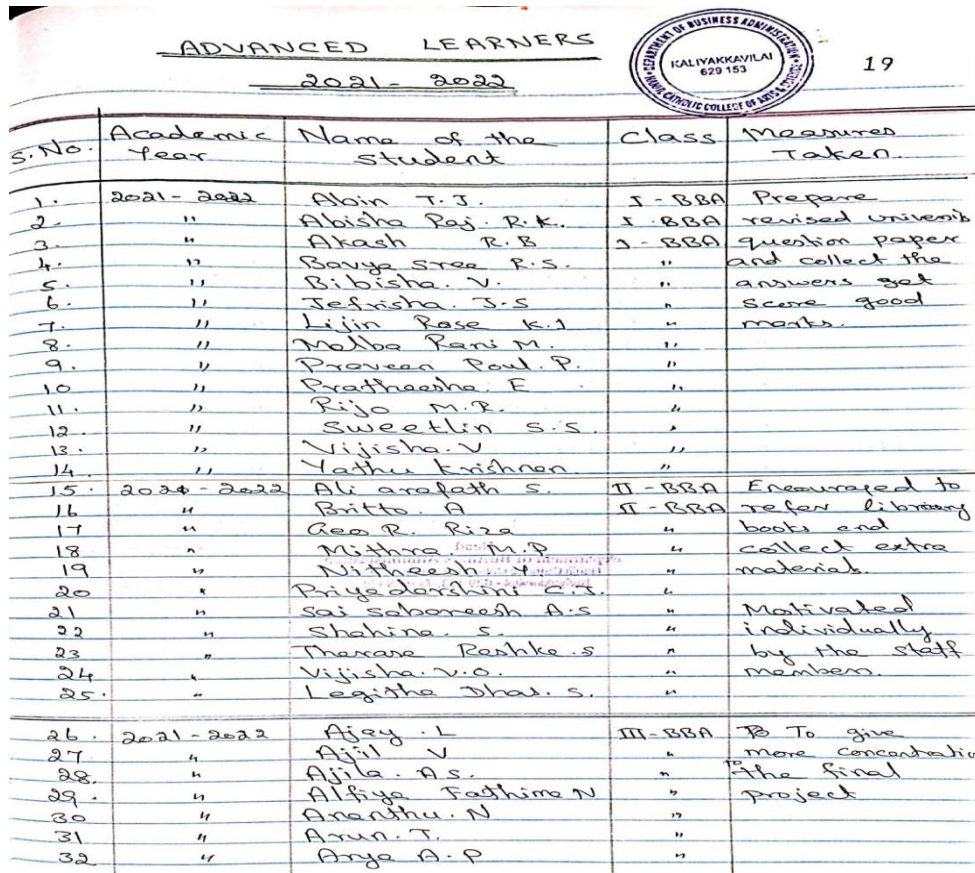 ADVANCED LEARNERS
2021 - 2022
DEPARTMENT OF BUSINESS ADMINISTRATION
KALIYAKKAVILAI
629 153
CATHOLIC COLLEGE OF ARTS &
19
S.No. Academic Year Name of the Student Class Measures Taken.
1. 2021 - 2022 Abin T.J. I - BBA Prepare
2. " Abisha Raj. R.K. I - BBA revised
3. " Akash R.B I - BBA question paper
4. " Bavya Sree R.S. " and collect the
5. " Bibisha. V. " answers get
6. " Jefrisha. J.S " score good
7. " Lijin Rose K.J " marks.
8. " Melba Rani M. "
9. " Praveen Poul. P. "
10 " Pratheesha. E "
11. " Rijo M.R. "
12. " Sweetlin S.S. "
13. " Vijisha. V "
14. " Yathu Krishnan. "
15. 2021 - 2022 Ali arafath S. II - BBA Encouraged to
16 " Britto. A II - BBA refer library
17 " Geo R. Riza " books and
18 " Mithra. M.P " collect extra
19 " Nitheesh Y. " materials.
20 " Priyadarshini C.J. "
21 " Sai Sabareesh A.S " Motivated
22 " Shahina. S. " individually
23 " Reshke. S " by the staff
24 " Vijisha. V.O. " members.
25. " Legitha Dhas. S. "
26. 2021 - 2022 Ajay. L III - BBA To give
27 " Ajil V " more concentratio
28. " Ajila. A S. " to the final
29. " Alfiya Fathima N " project
30 " Ananthu. N "
31 " Arun. T. "
32 " Arya A.P "